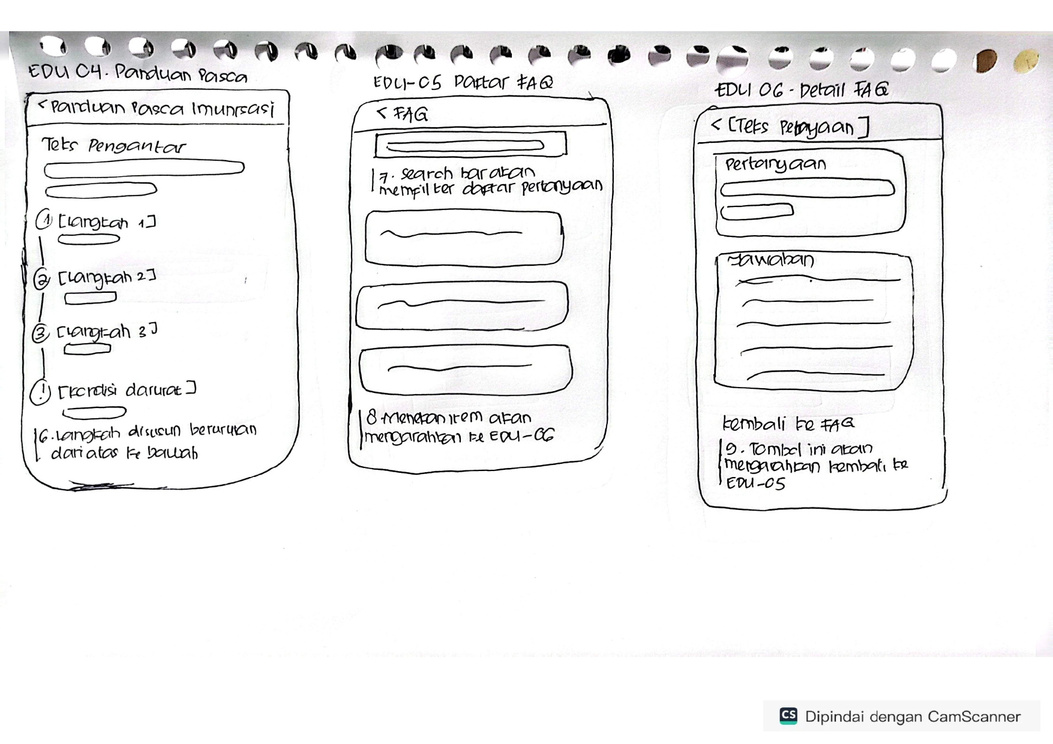 EDU 04. Panduan Pasca
< Panduan Pasca Imunisasi
Teks Pengantar
1 [Langkah 1]
2 [Langkah 2]
3 [Langkah 3]
! [Kondisi darurat]
6. Langkah disusun berurutan
dari atas ke bawah
EDU-05 Daftar FAQ
< FAQ
7. Search bar akan
memfilter daftar pertanyaan
8. Menekan item akan
mengarahkan ke EDU-06
EDU 06 - Detail FAQ
< [Teks Petayaan]
Pertanyaan
Jawaban
Kembali ke FAQ
9. Tombol ini akan
mengarahkan kembali ke
EDU-05
CS Dipindai dengan CamScanner